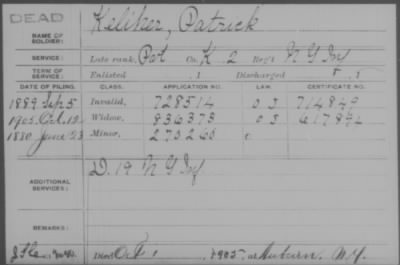 DEAD
Keliher, Patrick
NAME OF SOLDIER:
SERVICE: Late rank, Pvt Co. K 2 Reg't N Y Inf
TERM OF SERVICE: Enlisted , 1 Discharged , 1
DATE OF FILING. CLASS. APPLICATION NO. LAW. CERTIFICATE NO.
1889 Sep 5 Invalid, 728514 714849
1905 Oct. 12 Widow, 836373 617894
1880 June 23 Minor, 270260
ADDITIONAL SERVICES: D. 19 N Y Inf
REMARKS:
Died Oct 1, 1905, at Auburn, N.Y.